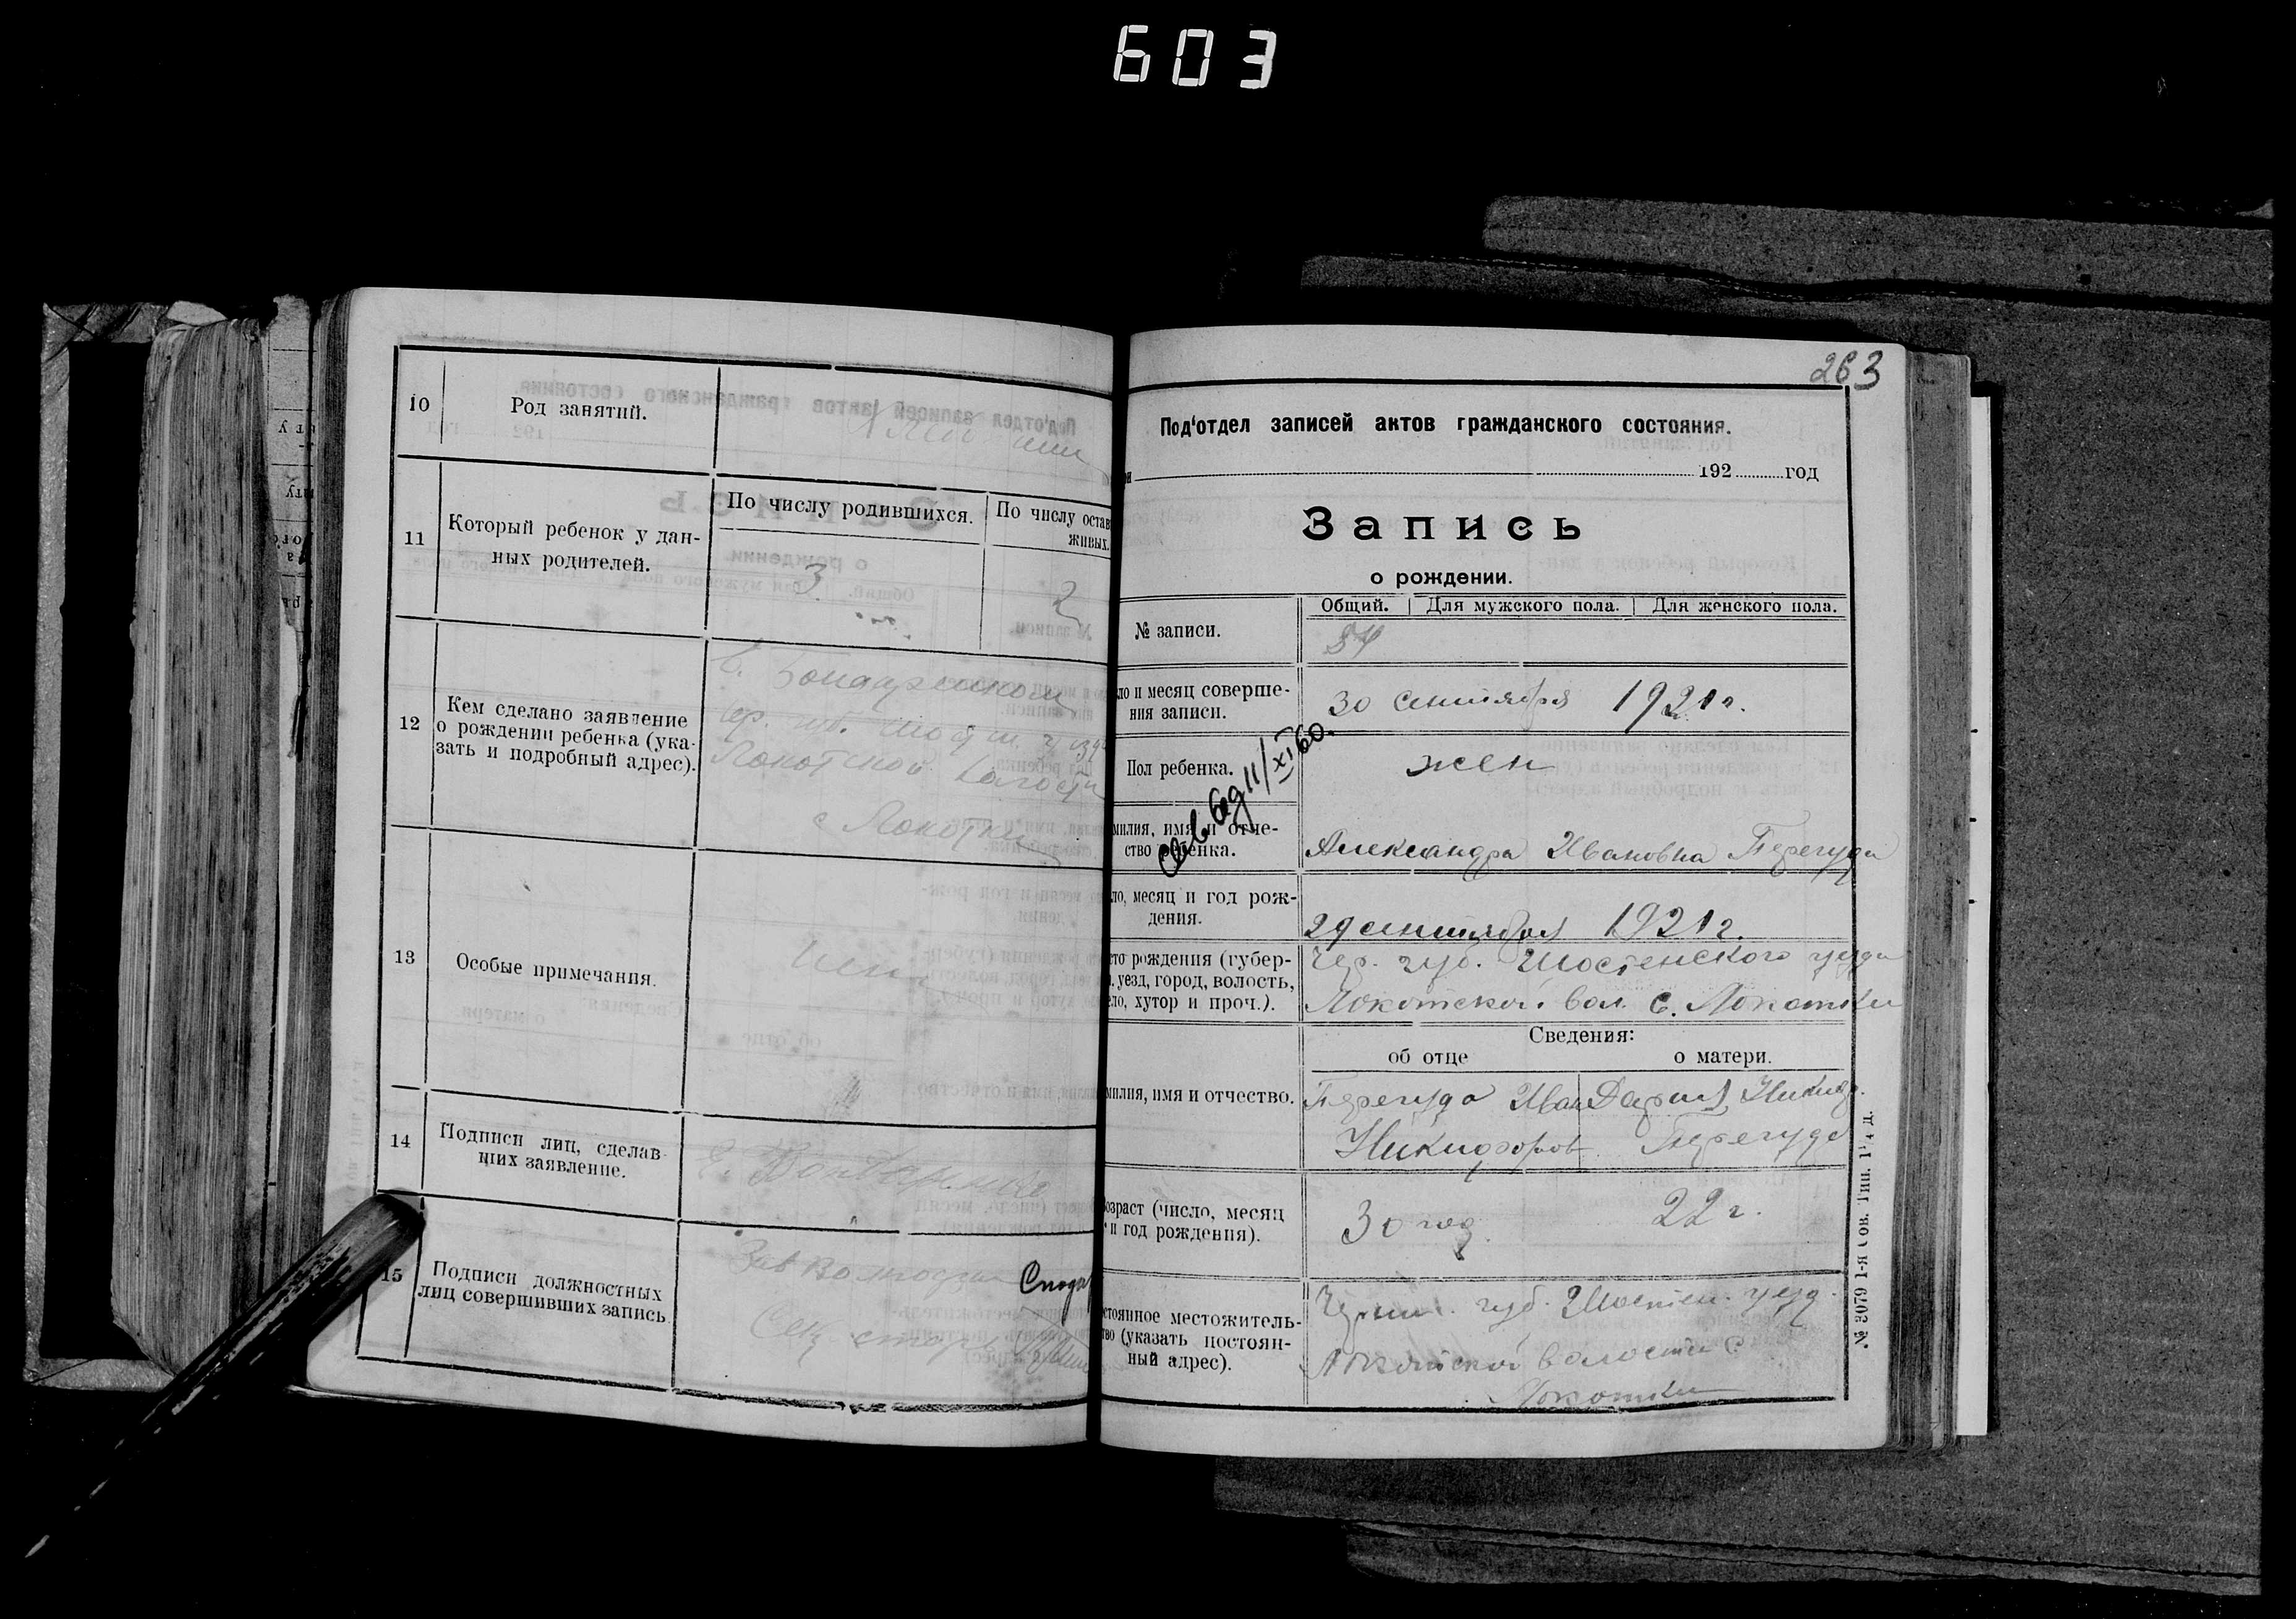 603
10
Род занятий.
11
Который ребенок у дан-
ных родителей.
По числу родившихся.
По числу остав
живых.
3
2
12
Кем сделано заявление
о рождении ребенка (ука-
зать и подробный адрес).
Локотской
с Локотки
13
Особые примечания.
14
Подписи лиц, сделав-
ших заявление.
Е. Бондаренко
15
Подписи должностных
лиц совершивших запись.
263
Под'отдел записей актов гражданского состояния.
192 год
Запись
о рождении.
Общий. Для мужского пола. Для женского пола.
№ записи.
84
ло и месяц соверше-
ния записи.
30 сентября 1921 г.
Пол ребенка.
жен
11/XI 60.
милия, имя и отче-
ство ребенка.
Александра Ивановна Перегуда
ло, месяц и год рож-
дения.
29 сентября 1921 г.
то рождения (губер-
. уезд, город, волость,
ло, хутор и проч.).
Чер. губ. Шостенского уезда
Локотской вол с. Локотки
Сведения:
об отце
о матери.
милия, имя и отчество.
Перегуда Иван
Никифоров
Дария Никиф.
Перегуда
озраст (число, месяц
и год рождения).
30 год
22 г.
стоянное местожитель-
тво (указать постоян-
ный адрес).
Черниг. губ. Шостен. уезд.
Локотской волости с
Локотки
№ 3079 1-я Сов. Тип. 1¼ д.